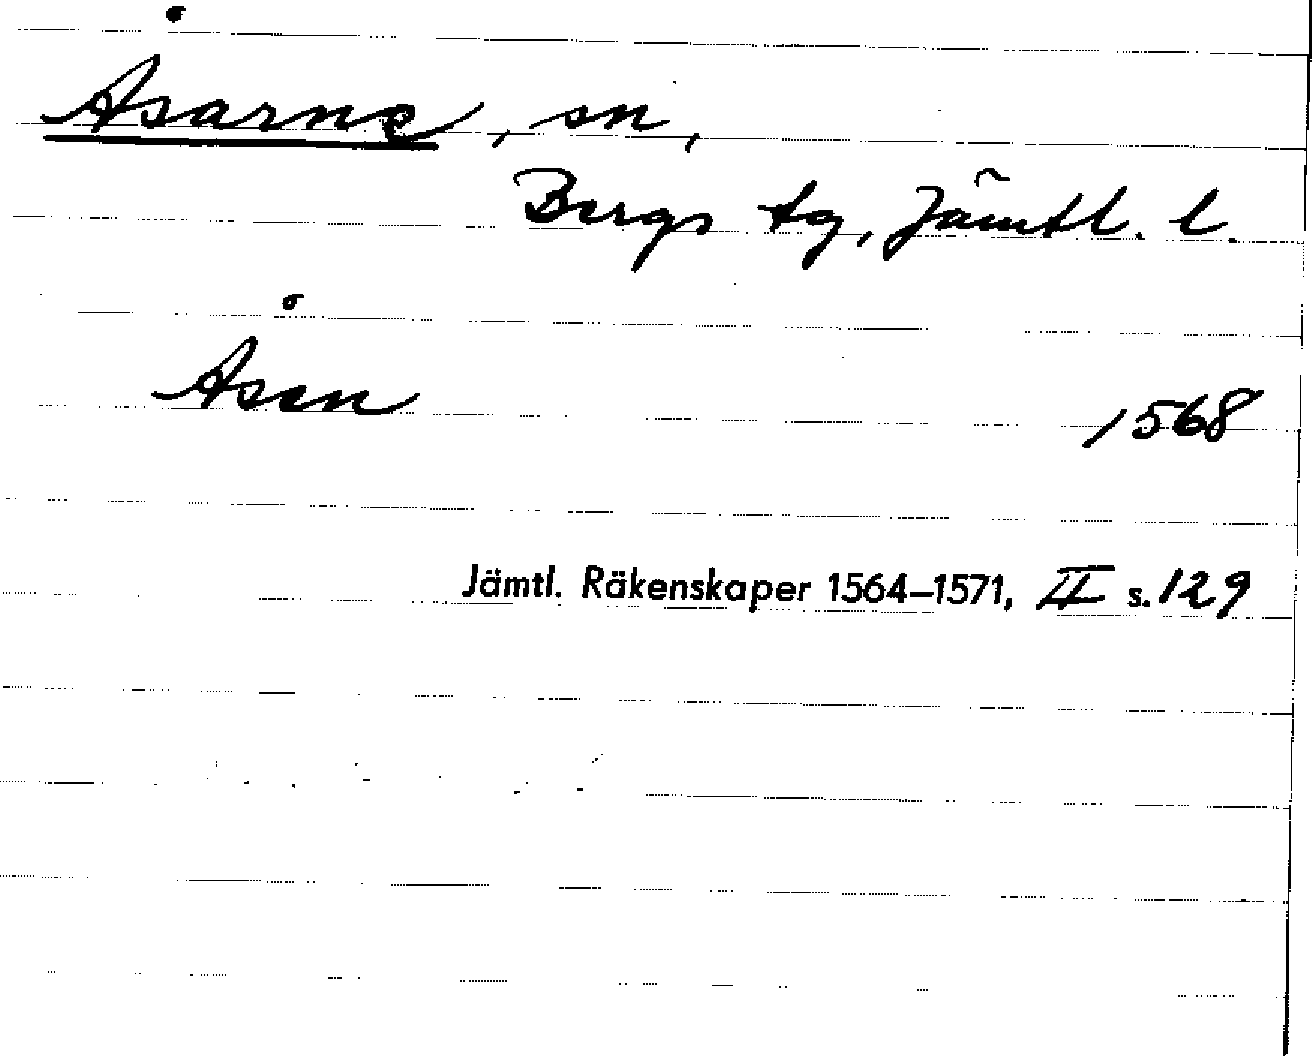 Åsarne, sn,
Bergs tg, Jämtl. l.
Åsen 1568
Jämtl. Räkenskaper 1564–1571, II s. 129